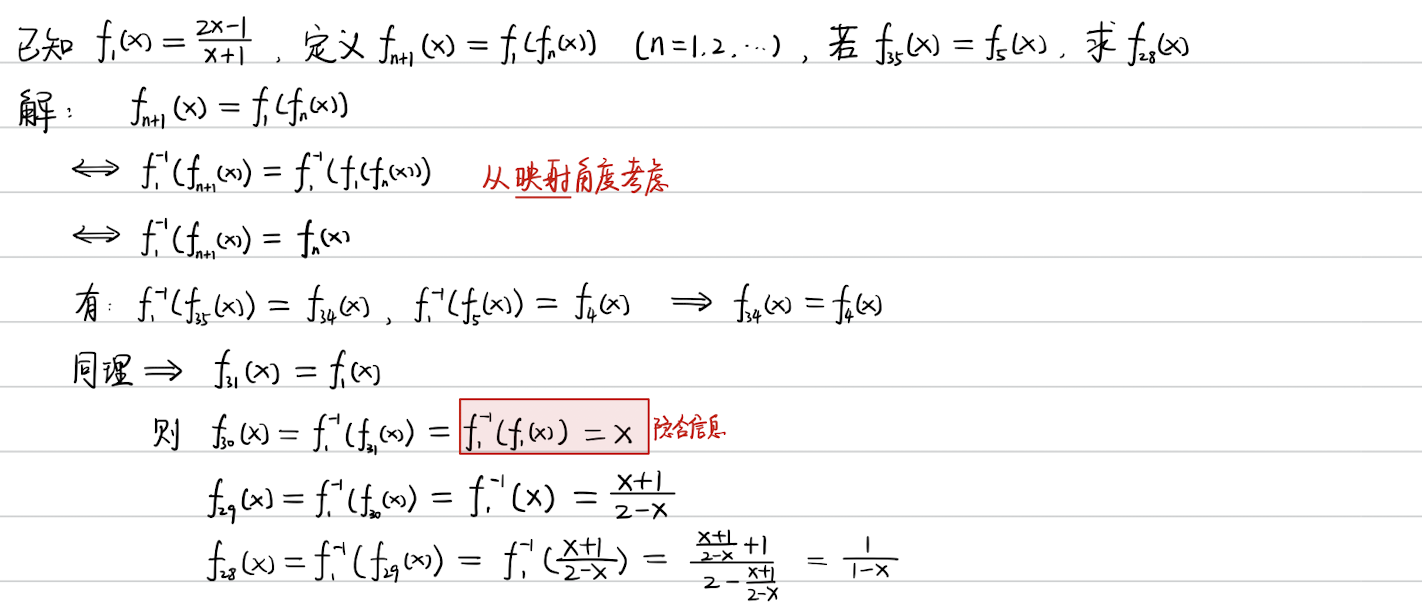 已知 f₁(x) = (2x-1)/(x+1) , 定义 fₙ₊₁(x) = f₁(fₙ(x)) (n=1,2,⋯) , 若 f₃₅(x) = f₅(x) , 求 f₂₈(x)
解: fₙ₊₁(x) = f₁(fₙ(x))
⟺ f₁⁻¹(fₙ₊₁(x)) = f₁⁻¹(f₁(fₙ(x))) 从映射角度考虑
⟺ f₁⁻¹(fₙ₊₁(x)) = fₙ(x)
有: f₁⁻¹(f₃₅(x)) = f₃₄(x) , f₁⁻¹(f₅(x)) = f₄(x) ⟹ f₃₄(x) = f₄(x)
同理 ⟹ f₃₁(x) = f₁(x)
则 f₃₀(x) = f₁⁻¹(f₃₁(x)) = f₁⁻¹(f₁(x)) = x 隐含信息
f₂₉(x) = f₁⁻¹(f₃₀(x)) = f₁⁻¹(x) = (x+1)/(2-x)
f₂₈(x) = f₁⁻¹(f₂₉(x)) = f₁⁻¹((x+1)/(2-x)) = ((x+1)/(2-x)+1)/(2-(x+1)/(2-x)) = 1/(1-x)